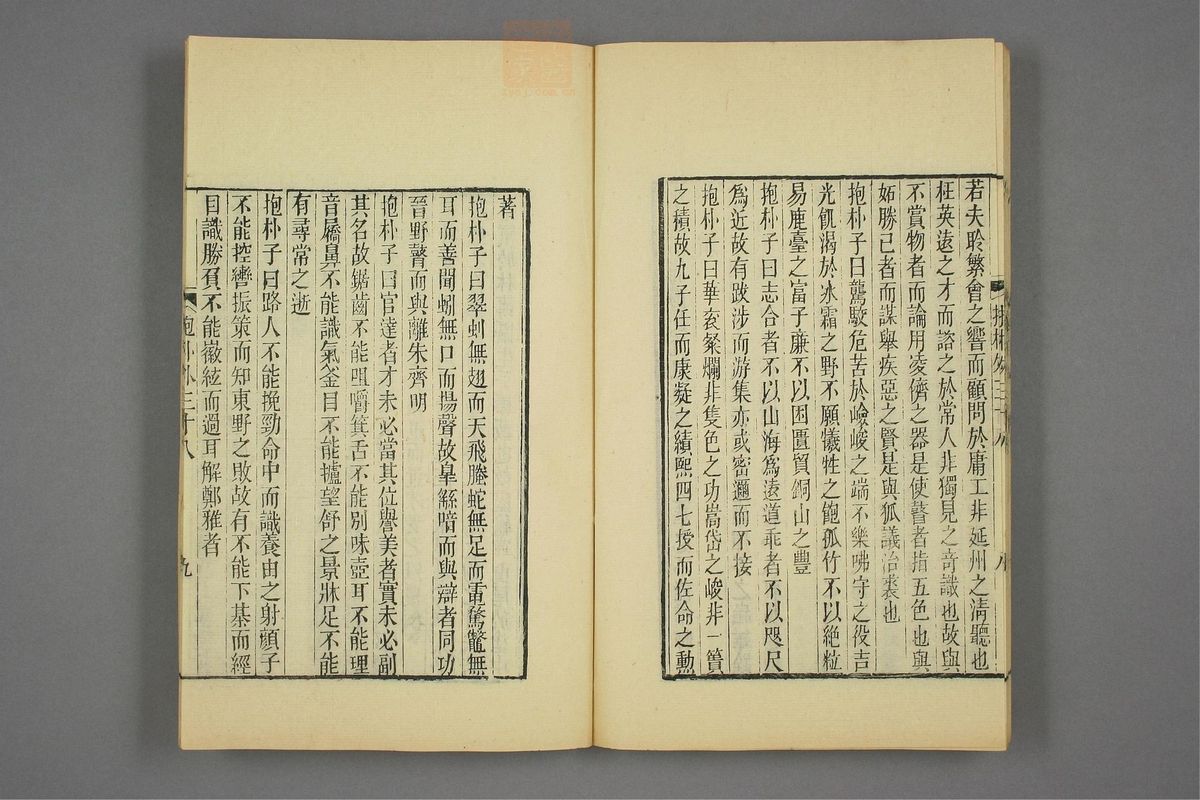 若夫聆繁會之響而顧問於庸工非延州之淸聽也
枉英遠之才而諮之於常人非獨見之奇識也故與
不賞物者而論用凌儕之器是使瞽者指五色也與
妬勝己者而謀舉疾惡之賢是與狐議治裘也
抱朴子曰鴑駮危苦於嶮峻之端不樂咈守之役吉
光飢渴於冰霜之野不願犧牲之飽孤竹不以絶粒
易鹿臺之富子廉不以困匱貿銅山之豐
抱朴子曰志合者不以山海爲遠道乖者不以咫尺
爲近故有跋涉而游集亦或密邇而不接
抱朴子曰華衮粲爛非隻色之功嵩岱之峻非一簣
之積故九子任而康凝之績熙四七授而佐命之勳
著
抱朴子曰翠虯無翅而天飛螣蛇無足而電騖鼈無
耳而善聞蚓無口而揚聲故臯繇喑而與辯者同功
晉野瞽而與離朱齊明
抱朴子曰官達者才未必當其位譽美者實未必副
其名故鋸齒不能咀嚼箕舌不能別味壺耳不能理
音屩鼻不能識氣釜目不能攄望舒之景牀足不能
有尋常之逝
抱朴子曰路人不能挽勁命中而識養由之射顏子
不能控轡振策而知東野之敗故有不能下棊而經
目識勝負不能徽絃而過耳解鄭雅者
抱朴外三十八
九